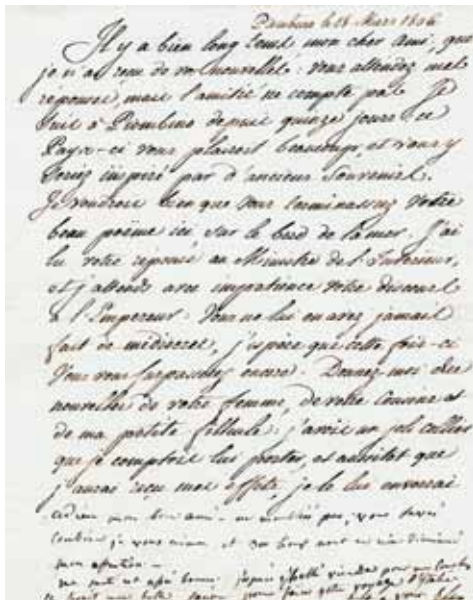 Piombino le 18 Mars 1806
Il y a bien long tems mon cher Ami, que
je n'ai reçu de vos nouvelles : vous attendez mes
réponses, mais l'amitié ne compte pas. Je
suis à Piombino depuis quinze jours ce
Pays-ci vous plairoit beaucoup, et vous y
seriez inspiré par d'anciens souvenirs.
Je voudrois bien que vous terminassiez votre
beau poëme ici sur le bord de la mer. J'ai
lu votre réponse au Ministre de l'Intérieur,
et j'attends avec impatience votre discours
à l'Empereur. Vous ne lui en avez jamais
fait de médiocres, j'espère que cette fois-ci
vous vous surpasserez encore. Donnez-moi des
nouvelles de votre femme, de votre Cousine et
de ma petite filleule : j'avois un joli collier
que je comptois lui porter, et aussitôt que
j'aurai reçu mes effets, je le lui enverrai
adieu mon bon ami - ne m'oubliez pas, vous savez
combien je vous aime et
mon affection -
ma santé est bonne viendra pour
une belle pour faire votre voyage d'Italie